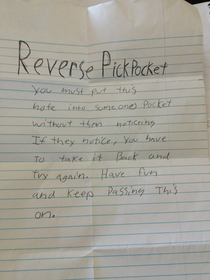 Reverse PickPocket
You must put this
note into someones Pocket
without them noticing
If they notice, You have
to take it Back and
try again. Have fun
and Keep Passing This
on.